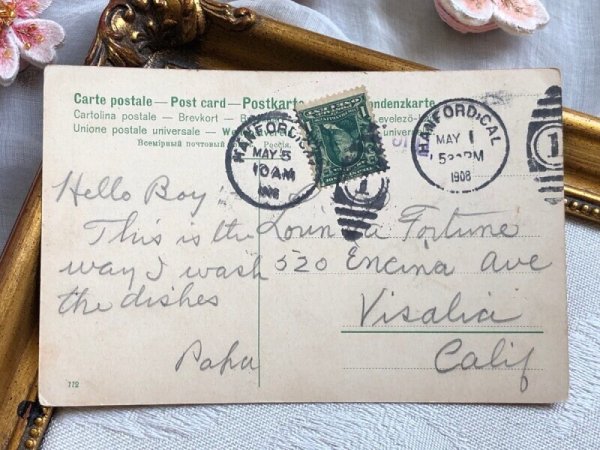 Carte postale — Post card — Postkarte
ndenzkarte
Cartolina postale — Brevkort —
Levelező
Unione postale universale —
Всемірный почтовый Россія.
HANFORD, CAL
MAY 5
10 AM
1908
1
HANFORD, CAL
MAY 1
5 PM
1908
1
Hello Boy
This is the
way I wash
the dishes
Papa
Fortune
520 Encina Ave
Visalia
Calif
772